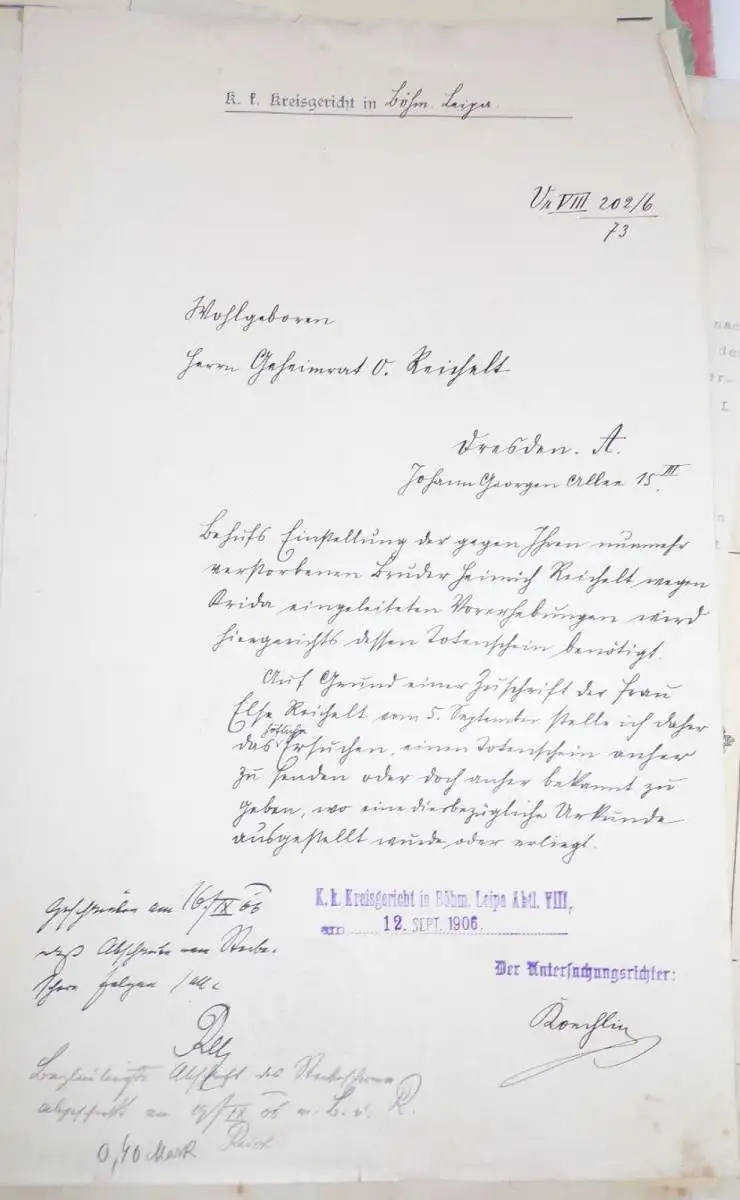 K. k. Kreisgericht in Böhm. Leipa
Vr VIII 202/6
73
Wohlgeboren
Herrn Geheimrat O. Reichelt
Dresden. A.
Johann Georgen Allee 15 III.
Behufs Einstellung der gegen Ihren nunmehr
verstorbenen Bruder Heinrich Reichelt wegen
Krida eingeleiteten Vorerhebungen wird
hiergerichts dessen Totenschein benötigt.
Auf Grund einer Zuschrift der Frau
Else Reichelt vom 5. September stelle ich daher
das höfliche Ersuchen, einen Totenschein anher
zu senden oder doch anher bekannt zu
geben, wo eine diesbezügliche Urkunde
ausgestellt wurde oder erliegt.
K. k. Kreisgericht in Böhm. Leipa Abtl. VIII,
am 12. SEPT. 1906.
Der Untersuchungsrichter:
Koechlin
Geschrieben am 16/IX 06
daß Abschrift vom Sterbe-
schein folgen
Abschrift des Sterbescheins
am 19/IX 06 R.
0,40 Mark